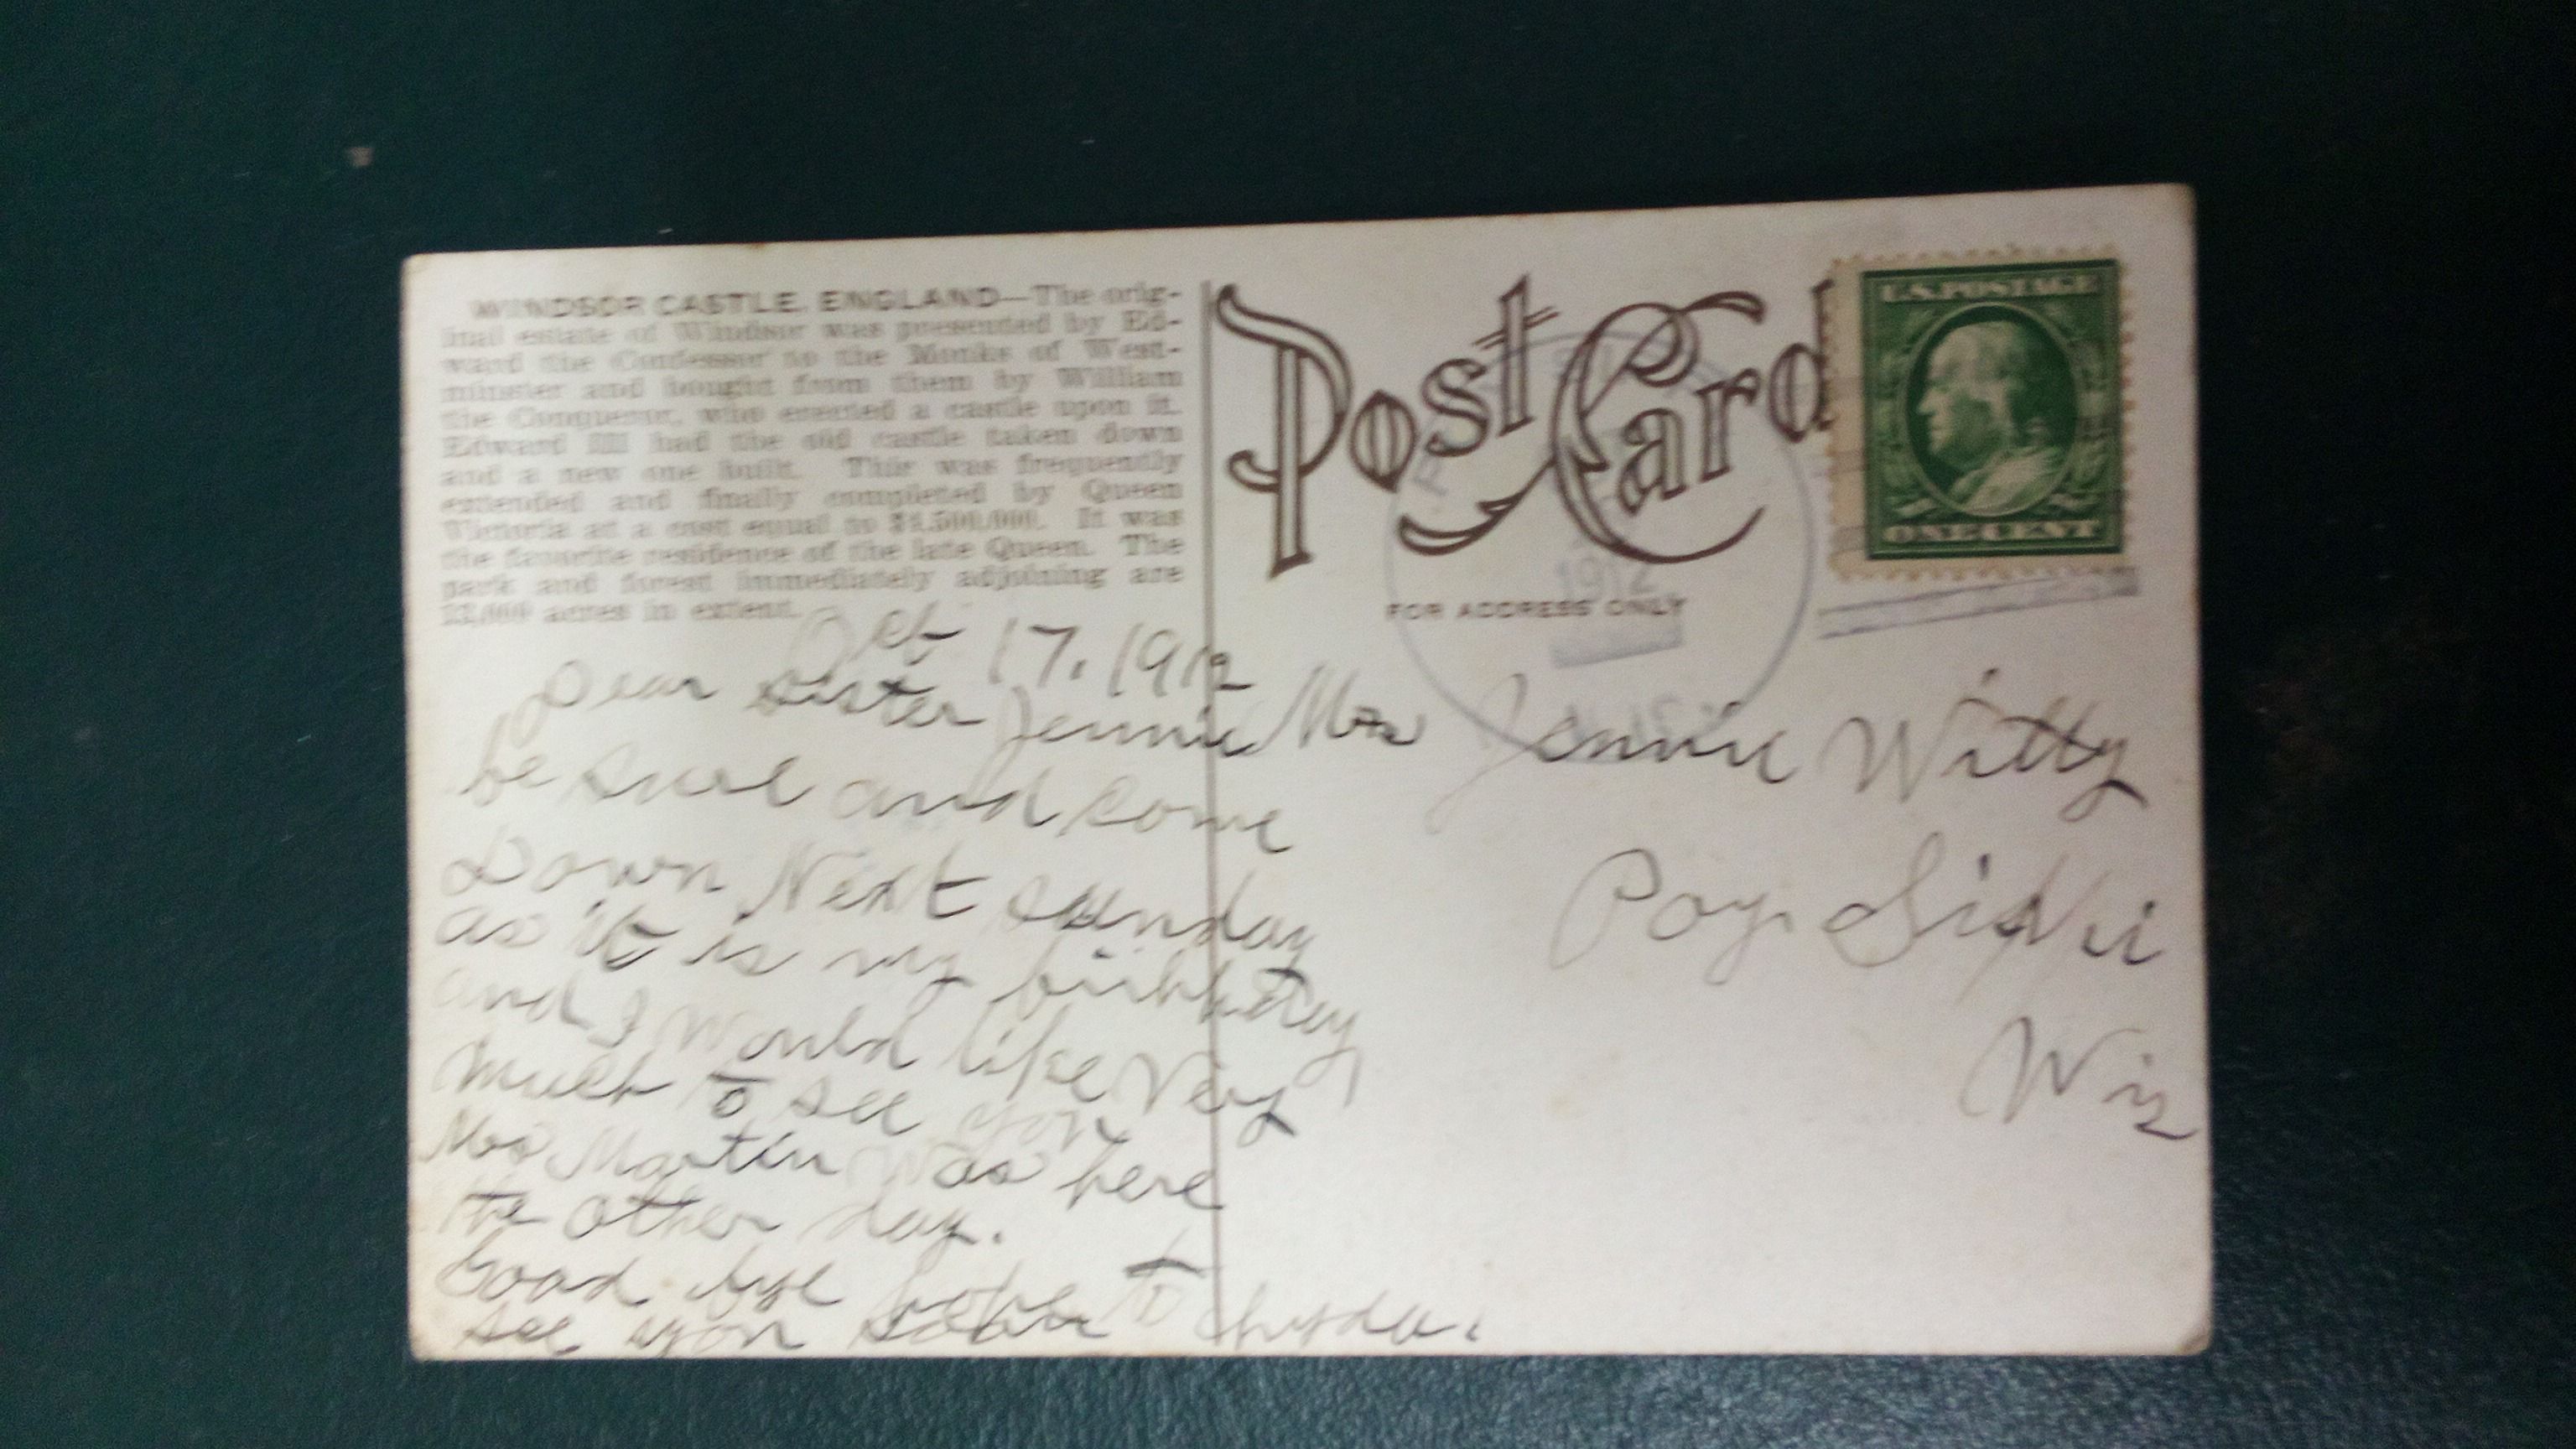 WINDSOR CASTLE, ENGLAND—The orig-
inal estate of Windsor was presented by Ed-
ward the Confessor to the Monks of West-
minster and bought from them by William
the Conqueror, who erected a castle upon it.
Edward III had the old castle taken down
and a new one built. This was frequently
extended and finally completed by Queen
Victoria at a cost equal to $4,500,000. It was
the favorite residence of the late Queen. The
park and forest immediately adjoining are
13,000 acres in extent.
Oct 17, 1912
Dear Sister Jennie
be sure and come
Down Next Sunday
as it is my birthday
and I would like Very
much to see you
Mrs Martin was here
the other day.
Good bye hope to
see you
Post Card
FOR ADDRESS ONLY
1912
U.S. POSTAGE
ONE CENT
Mrs Jennie Witty
Poy Sippi
Wis